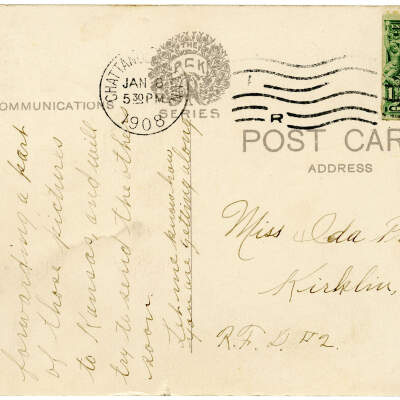 CHATTANOOGA
JAN 8
5 30 PM
1908
THE
P.C.K
SERIES
COMMUNICATIONS
R
1
POST CAR
ADDRESS
forwarding a part
of those pictures
to Kansas, and will
try to send the other
soon.
Let me know how
you are getting along
Miss Ida
Kirklin,
R.F.D. #2.